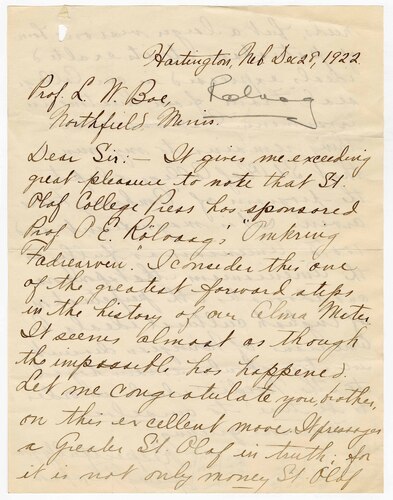 Hartington, Neb Dec 28, 1922
Prof. L. W. Boe,
Rolvaag
Northfield Minn.
Dear Sir:— It gives me exceeding
great pleasure to note that St.
Olaf College Press has sponsored
Prof O. E. Rölvaag's "Omkring
Fadrearven. I consider this one
of the greatest forward steps
in the history of our Alma Mater.
It seems almost as though
the impossible has happened.
Let me congratulate you, brother,
on this excellent move. It presages
a Greater St. Olaf in truth; for
it is not only money St. Olaf